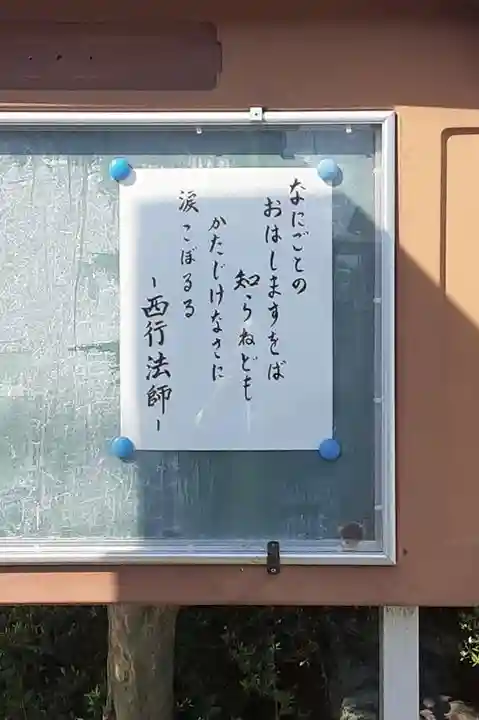 なにごとの
おはしますをば
知らねども
かたじけなさに
涙こぼるる
-西行法師-